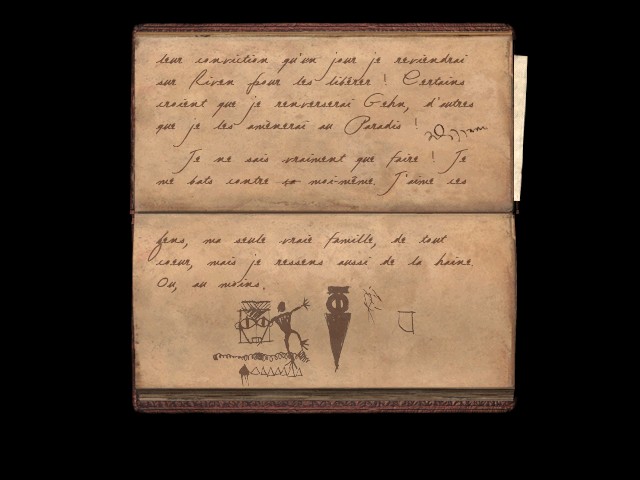 leur conviction qu'un jour je reviendrai
sur Riven pour les libérer ! Certains
croient que je renverserai Gehn, d'autres
que je les amènerai au Paradis !
Je ne sais vraiment que faire ! Je
me bats contre moi-même. J'aime ces
gens, ma seule vraie famille, de tout
coeur, mais je ressens aussi de la haine.
Ou, au moins,